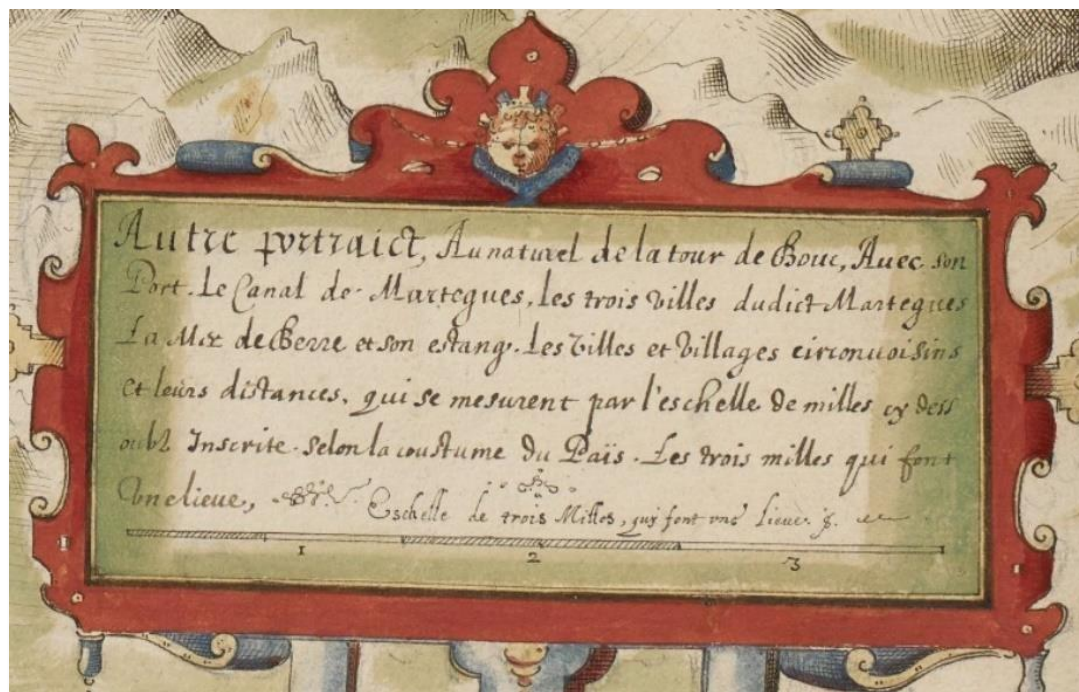 Autre portraict, Au naturel de la tour de Bouc, Auec son
Port. Le Canal de Martegues, les trois villes dudict Martegues
La Mer de Berre et son estang. Les Villes et Villages circonuoisins
et leurs distances, qui se mesurent par l'eschelle de milles cy dess
oubz Inscrite. Selon la coustume du Païs. Les trois milles qui font
Vne lieue,
Eschelle de trois Milles, quy font vne Lieue.
1 2 3